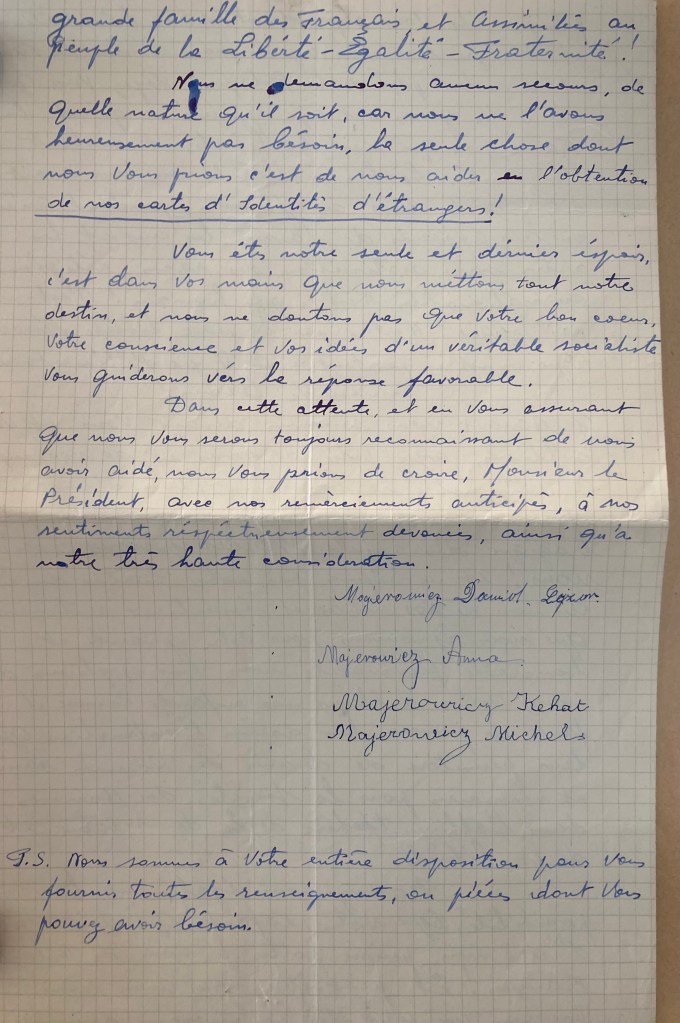 grande famille des Français et Assimiliés au
peuple de la Libérté - Égalité - Fraternité!
Nous ne demandons aucun secours, de
quelle nature qu'il soit, car nous ne l'avons
heureusement pas bésoin, la seule chose dont
nous Vous prions c'est de nous aider en l'obtention
de nos cartes d'Identités d'étrangers!
Vous êtes notre seule et dérnier éspoir,
c'est dans Vos mains que nous méttons tout notre
déstin, et nous ne doutons pas que Votre bon coeur,
Votre conscience et Vos idées d'un véritable socialiste
Vous guiderons vérs la réponse favorable.
Dans cette attente, et en Vous assurant
que nous Vous serons toujours reconnaissant de nous
avoir aidé, nous Vous prions de croire, Monsieur le
Président, avec nos remèrciements anticipés, à nos
sentiments réspéctueusement devouées, ainsi qu'a
notre très haute consideration.
Majerowicz Daniel.
Majerowicz Anna
Majerowicz Kehat
Majerowicz Michel
P.S. Nous sommes à Votre entière disposition pour Vous
fournir toutes les renseignements, ou pièces dont Vous
pouvez avoir bésoin.